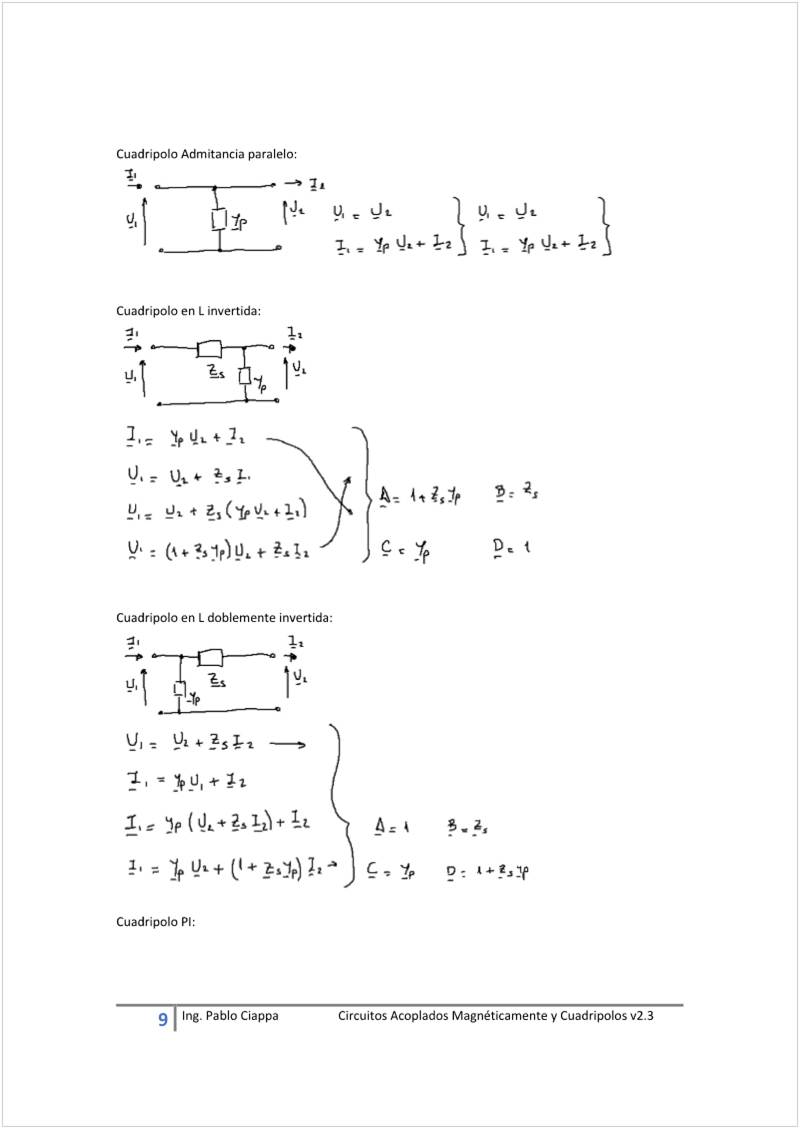 Cuadripolo Admitancia paralelo:
I1
I2
U1
Yp
U2
U1 = U2
I1 = Yp U2 + I2
U1 = U2
I1 = Yp U2 + I2
Cuadripolo en L invertida:
I1
I2
U1
Zs
Yp
U2
I1 = Yp U2 + I2
U1 = U2 + Zs I1
U1 = U2 + Zs (Yp U2 + I2)
U1 = (1 + Zs Yp) U2 + Zs I2
A = 1 + Zs Yp B = Zs
C = Yp D = 1
Cuadripolo en L doblemente invertida:
I1
I2
U1
Zs
Yp
U2
U1 = U2 + Zs I2
I1 = Yp U1 + I2
I1 = Yp (U2 + Zs I2) + I2
I1 = Yp U2 + (1 + Zs Yp) I2
A = 1 B = Zs
C = Yp D = 1 + Zs Yp
Cuadripolo PI:
9 Ing. Pablo Ciappa Circuitos Acoplados Magnéticamente y Cuadripolos v2.3